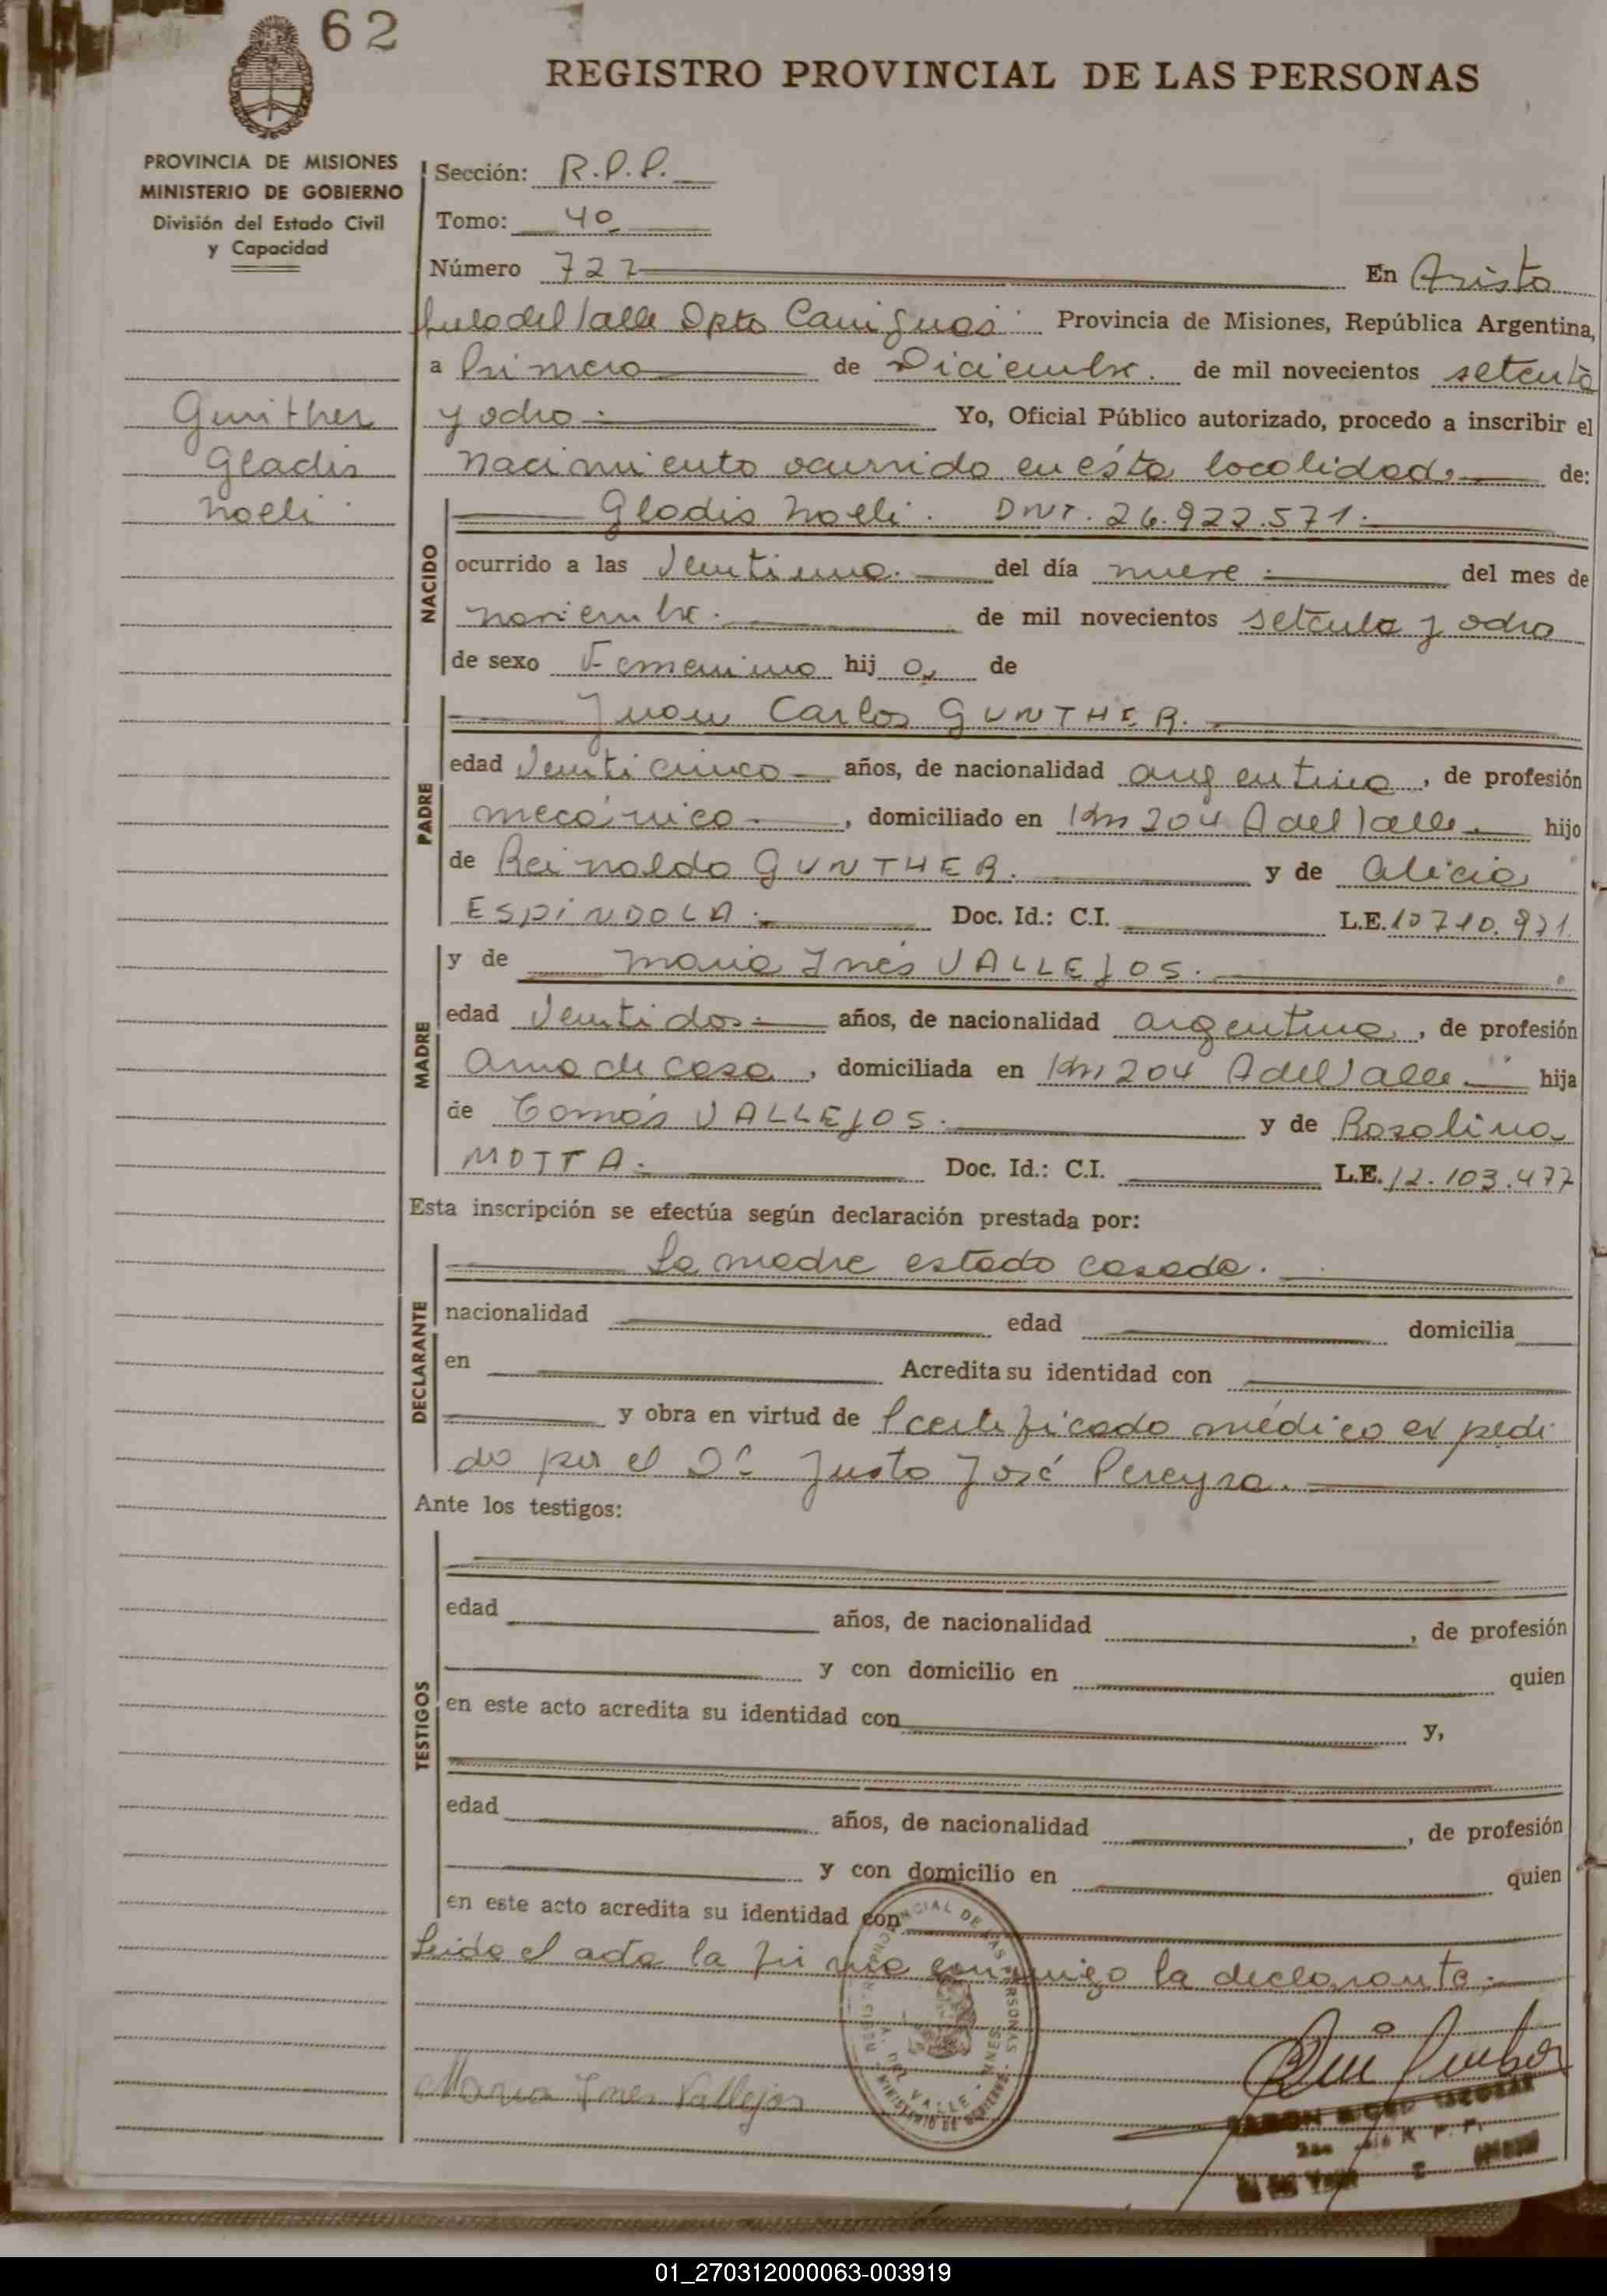 62
REGISTRO PROVINCIAL DE LAS PERSONAS
PROVINCIA DE MISIONES
MINISTERIO DE GOBIERNO
División del Estado Civil
y Capacidad
Sección: R.P.P.
Tomo: 4º
Número 727 En Aristo
bulo del Valle Dpto Cainguas Provincia de Misiones, República Argentina,
a Primero de Diciembre. de mil novecientos setenta
y ocho Yo, Oficial Público autorizado, procedo a inscribir el
Gunther
Gladis
Noeli
nacimiento ocurrido en ésta localidad de:
NACIDO
Gladis Noeli. DNI. 26.922.571.
ocurrido a las Veintiuna. del día nueve del mes de
noviembre. de mil novecientos setenta y ocho
de sexo Femenino hij a, de
PADRE
Juan Carlos GUNTHER.
edad Veinticinco años, de nacionalidad argentina, de profesión
mecánico, domiciliado en Km 204 A del Valle hijo
de Reinaldo GUNTHER. y de Alicia
ESPINDOLA. Doc. Id.: C.I. L.E. 10710.971.
MADRE
y de Maria Inés VALLEJOS.
edad Veintidos años, de nacionalidad argentina, de profesión
Ama de casa, domiciliada en Km 204 A del Valle hija
de Tomás VALLEJOS. y de Rosalina
MOTTA. Doc. Id.: C.I. L.E. 12.103.477
Esta inscripción se efectúa según declaración prestada por:
DECLARANTE
La madre estado casada.
nacionalidad edad domicilia
en Acredita su identidad con
y obra en virtud de certificado médico expedi
do por el Dr. Justo José Pereyra.
Ante los testigos:
TESTIGOS
edad años, de nacionalidad , de profesión
y con domicilio en quien
en este acto acredita su identidad con y,
edad años, de nacionalidad , de profesión
y con domicilio en quien
en este acto acredita su identidad con
Leida el acta la firma conmigo la declarante.
Maria Ines Vallejos
01_270312000063-003919